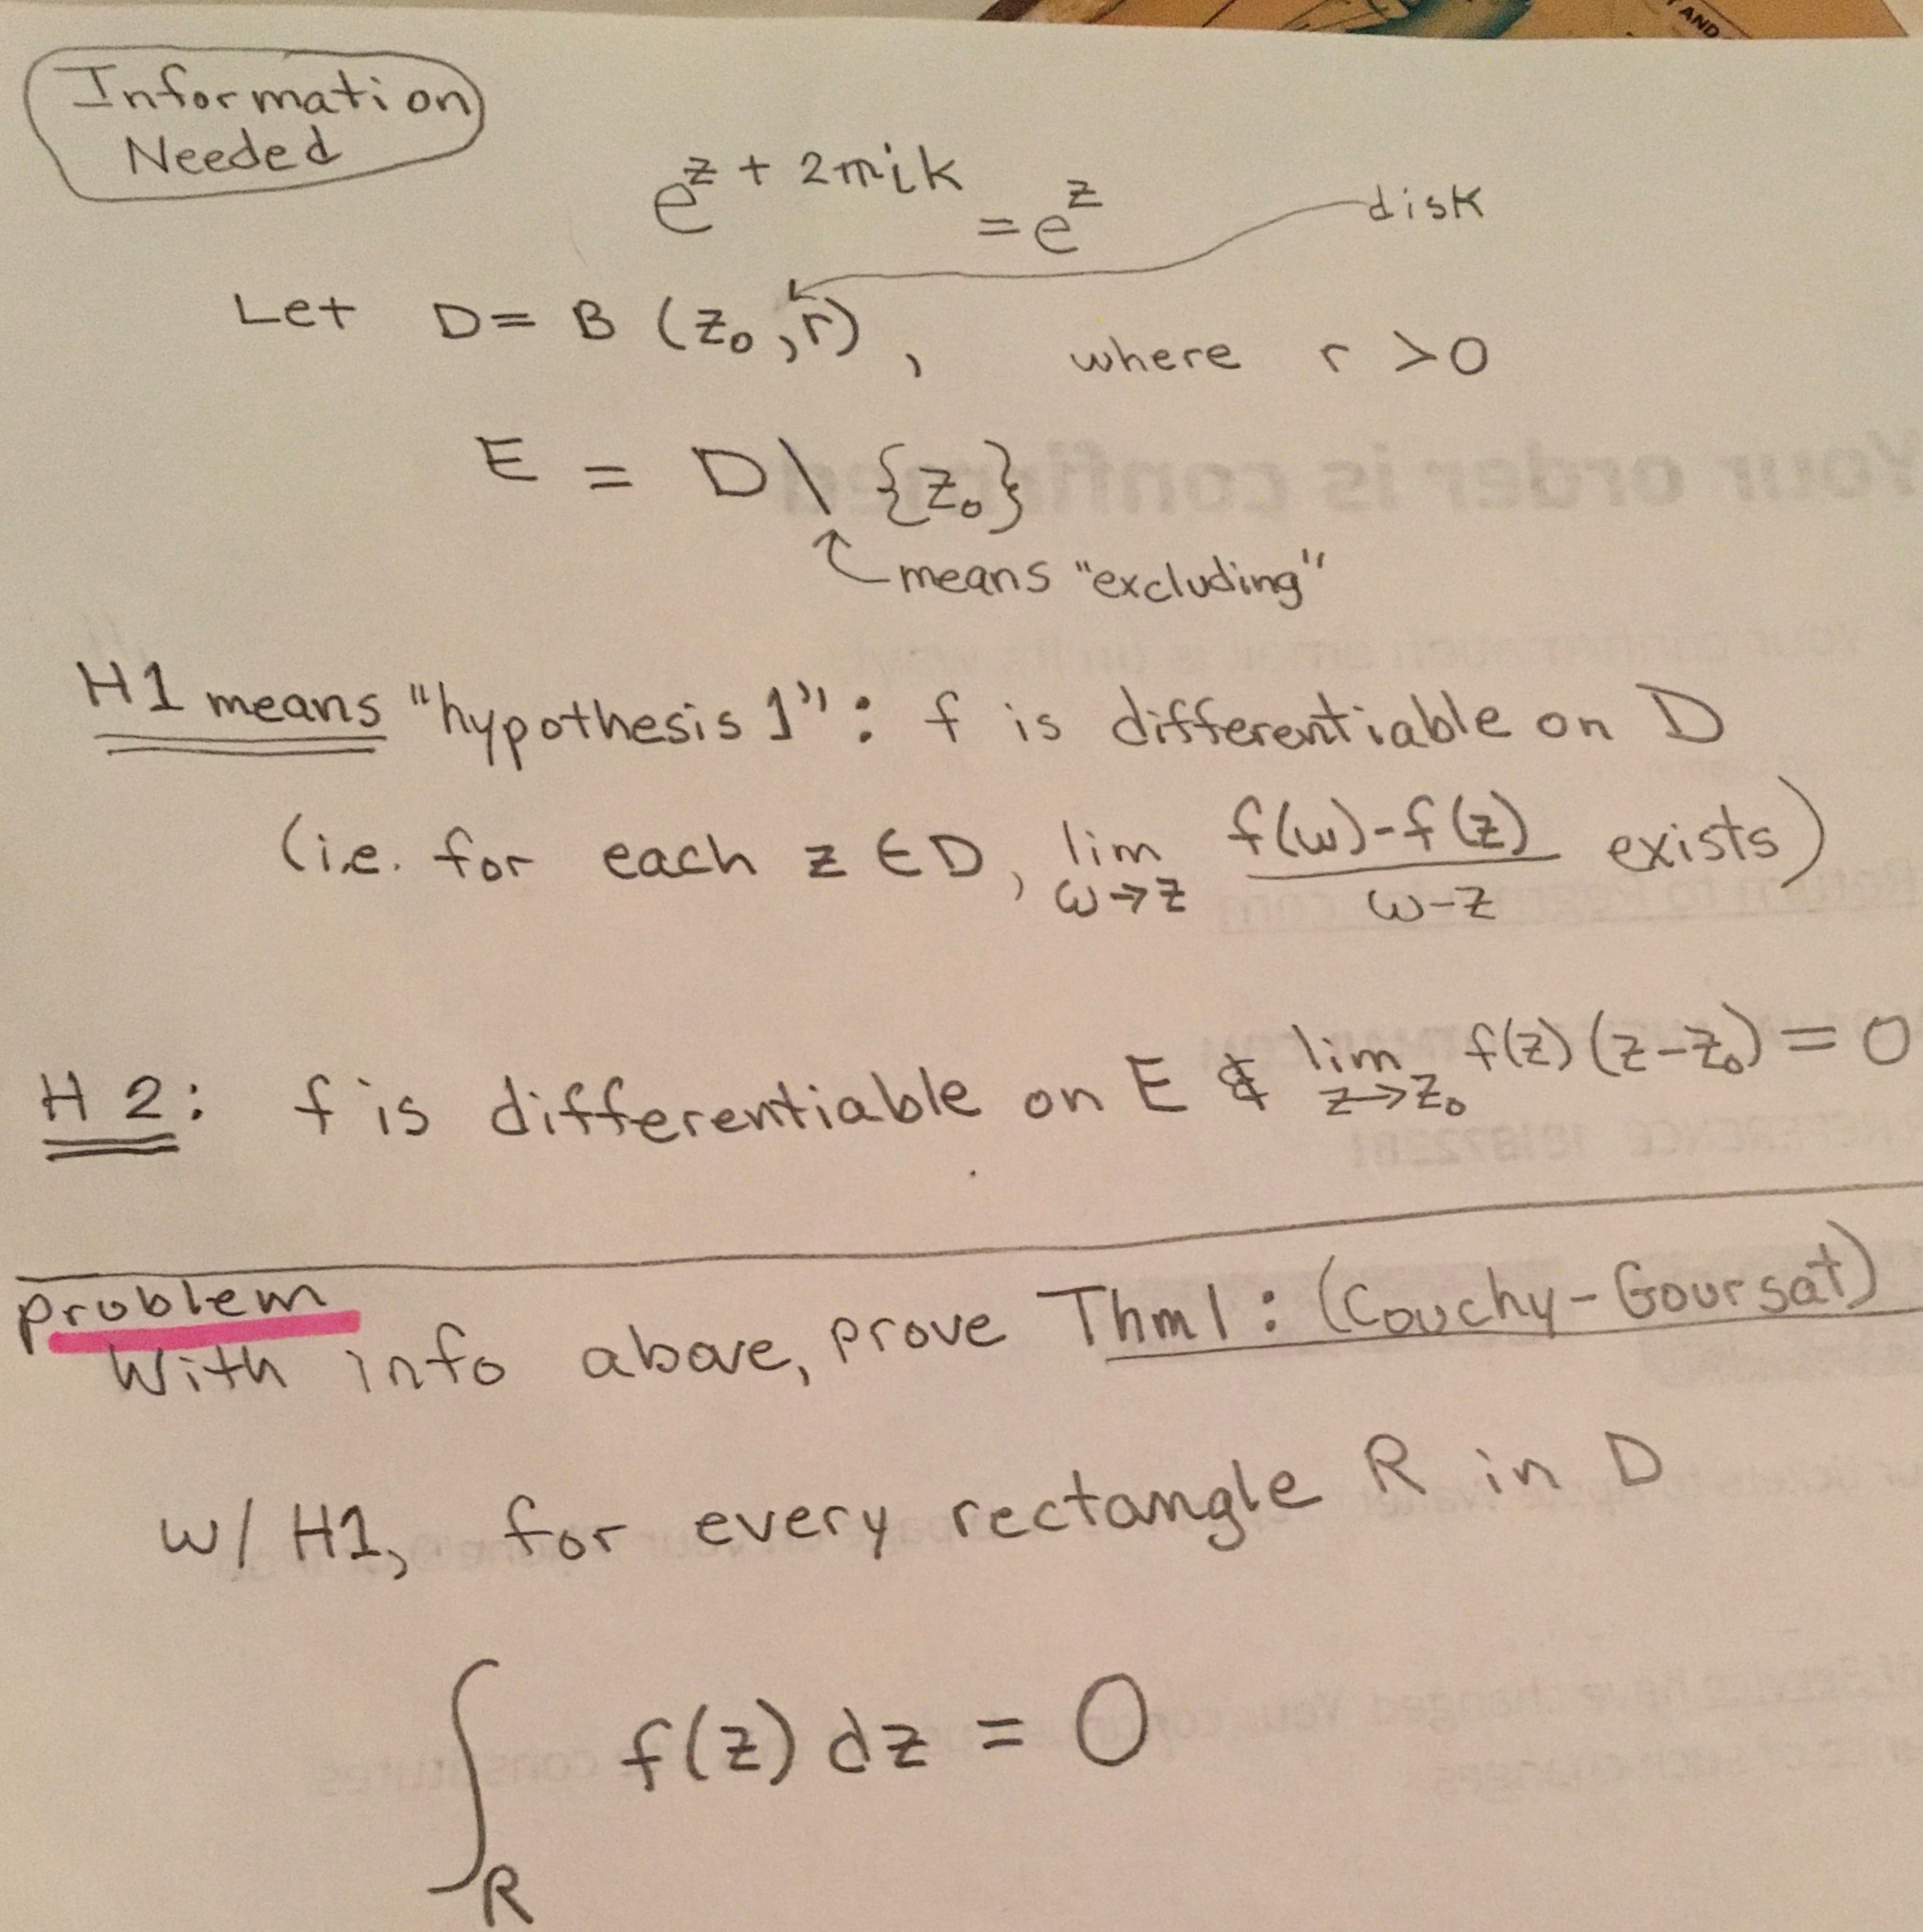 AND
Information
Needed
e^{z + 2πik} = e^z
disk
Let D = B (z₀, r), where r > 0
E = D \ {z₀}
means "excluding"
H1 means "hypothesis 1" : f is differentiable on D
(i.e. for each z ∈ D, lim_{ω→z} \frac{f(ω)-f(z)}{ω-z} exists)
H2: f is differentiable on E & lim_{z→z₀} f(z)(z-z₀) = 0
Problem
With info above, prove Thm1: (Couchy-Goursat)
w/ H1, for every rectangle R in D
∫_R f(z) dz = 0